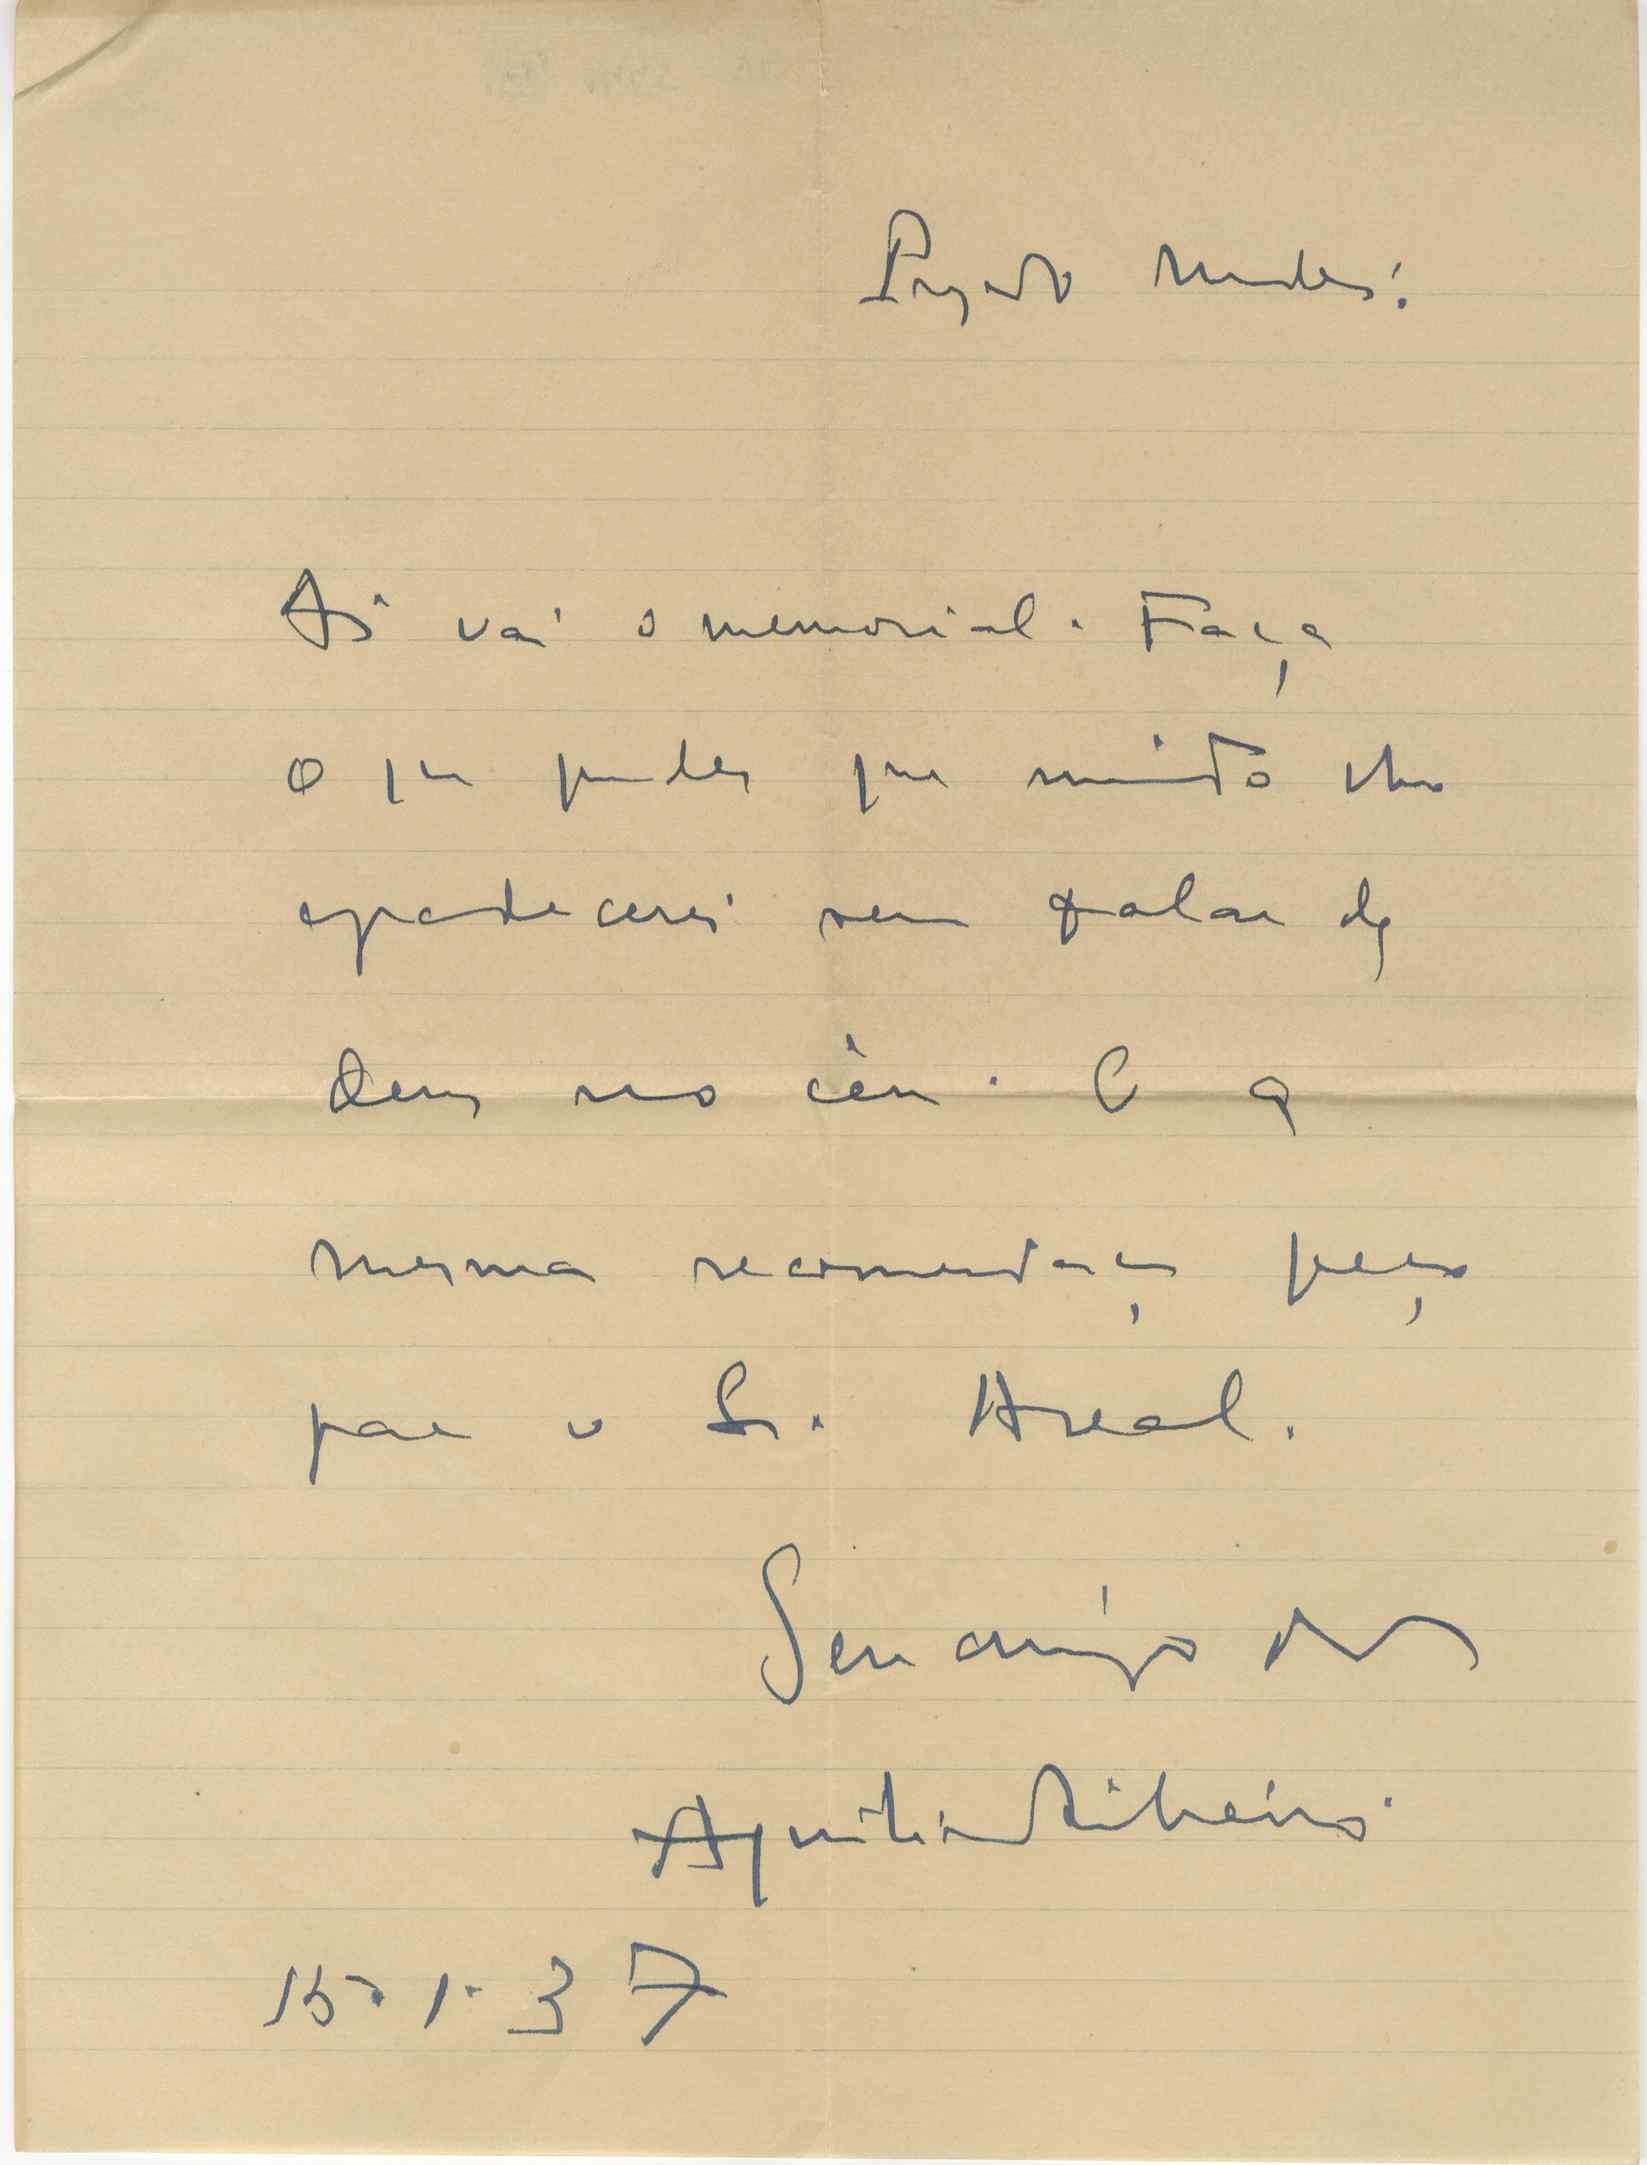 Prezado Mendes:
Aí vai o memorial. Faça
o que puder que muito lho
agradecerei sem falar de
Deus no céu. E a
mesma recomendação peço
para o Sr. Areal.
Seu amigo
Aquilino Ribeiro
15.1.37